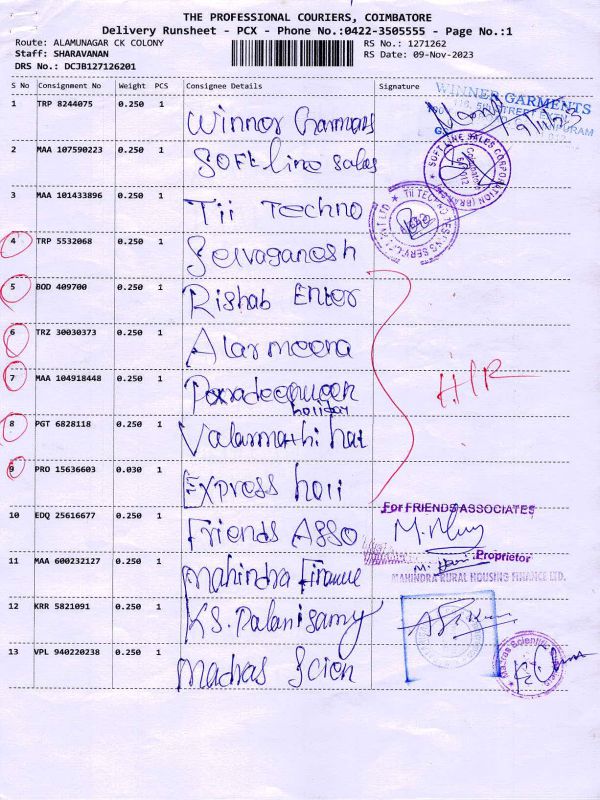 THE PROFESSIONAL COURIERS, COIMBATORE
Delivery Runsheet - PCX - Phone No.:0422-3505555 - Page No.:1
Route: ALAMUNAGAR CK COLONY RS No.: 1271262
Staff: SHARAVANAN RS Date: 09-Nov-2023
DRS No.: DCJB127126201
S No Consignment No Weight PCS Consignee Details Signature
1 TRP 8244075 0.250 1 Winner Garmens
WINNER GARMENTS
2 MAA 107590223 0.250 1 Soft line Sales
SOFT LINE SALES CORPORATION
3 MAA 101433896 0.250 1 Tii Techno
4 TRP 5532068 0.250 1 Selvaganesh
5 BOD 409700 0.250 1 Rishab Enter
6 TRZ 30030373 0.250 1 Alarmeena
7 MAA 104918448 0.250 1
holiday
H/R
8 PGT 6828118 0.250 1 Valarmathi hat
9 PRO 15636603 0.030 1 Express holi
For FRIENDS ASSOCIATES
10 EDQ 25616677 0.250 1 Friends Asso
Proprietor
11 MAA 600232127 0.250 1 Mahindra Finance
MAHINDRA RURAL HOUSING FINANCE LTD.
12 KRR 5821091 0.250 1 K.S. Palanisamy
13 VPL 940220238 0.250 1 Madras Scien